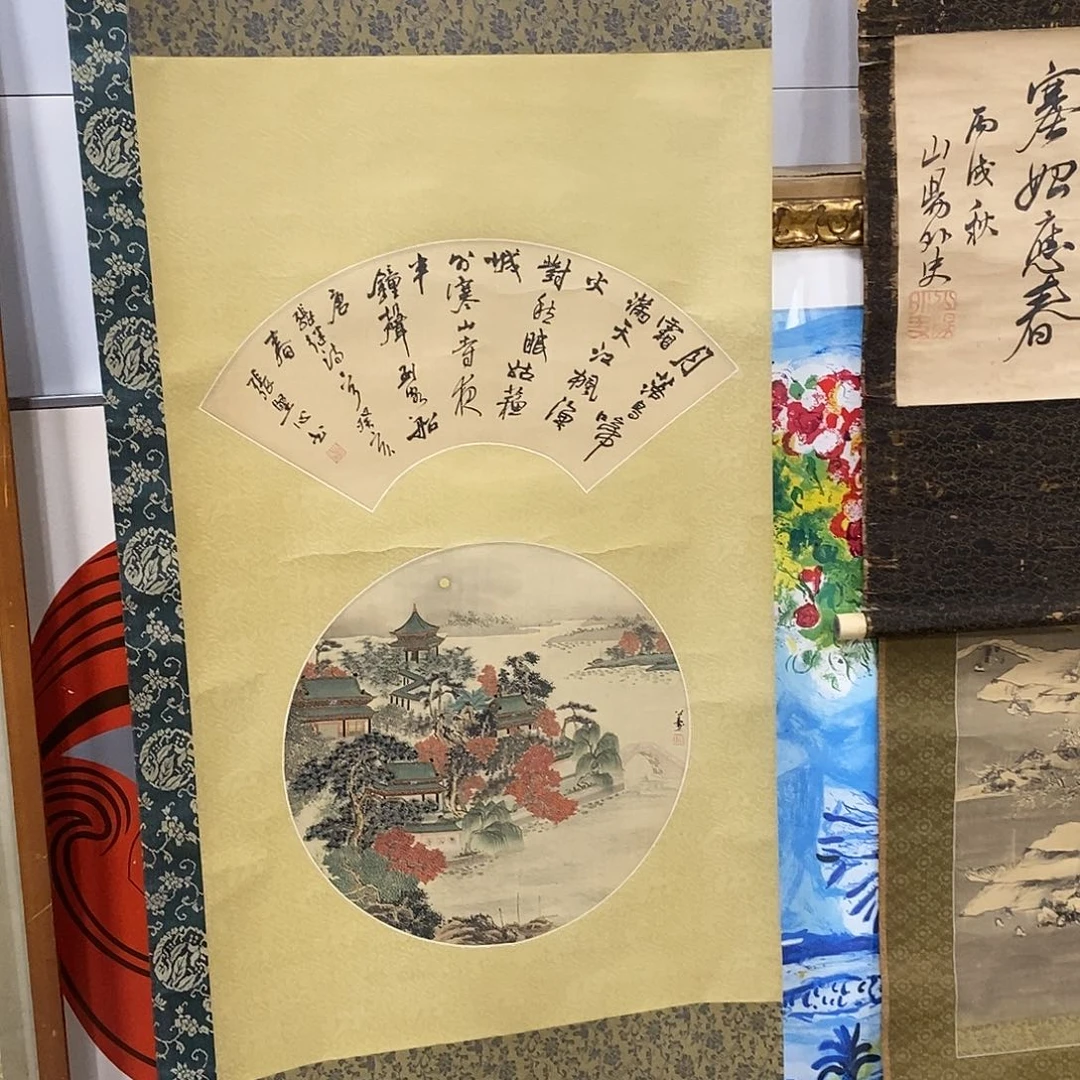 月落烏啼
霜
滿天江楓漁
火
對愁眠姑蘇
城
外寒山寺夜
半
鐘聲到客船
唐
張繼詩 癸亥
春
張 心書
應春
丙戌秋
山陽外史